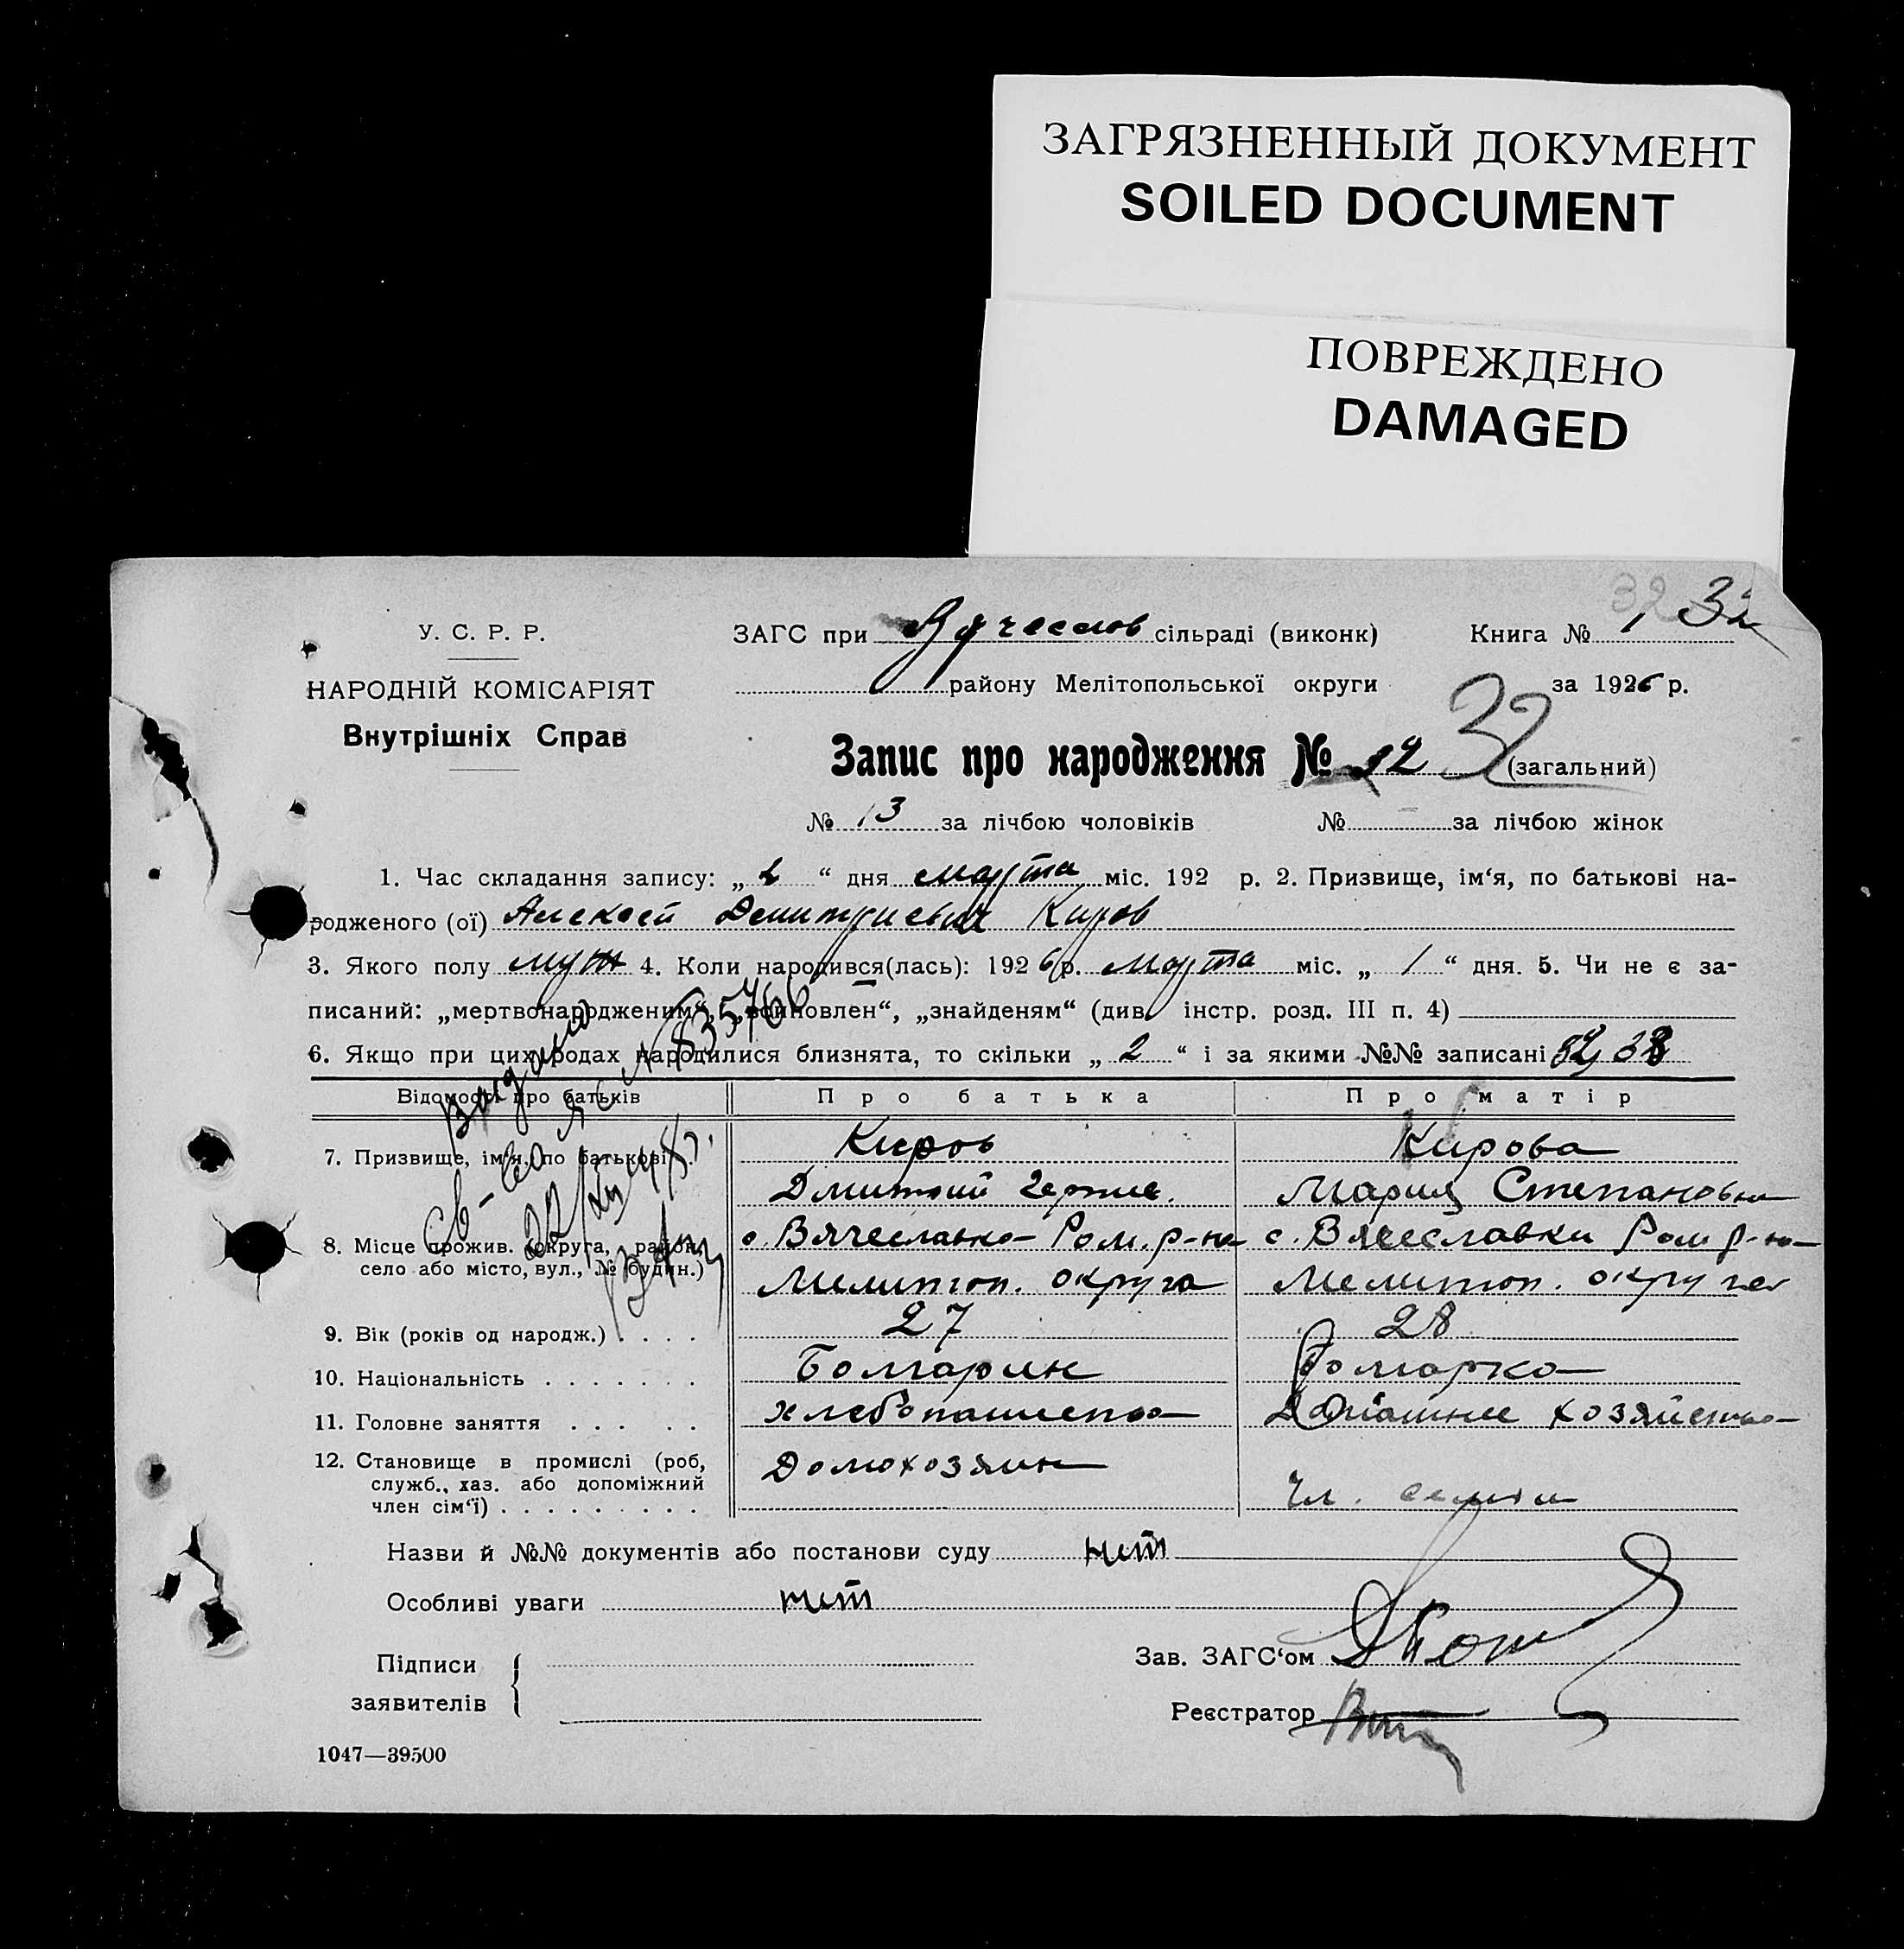 ЗАГРЯЗНЕННЫЙ ДОКУМЕНТ
SOILED DOCUMENT
ПОВРЕЖДЕНО
DAMAGED
32 32
У. С. Р. Р.
НАРОДНІЙ КОМІСАРІЯТ
Внутрішніх Справ
ЗАГС при Вячеслов сільраді (виконк) Книга № 1
району Мелітопольської округи за 1926 р.
Запис про народження № 32 (загальний)
№ 13 за лічбою чоловіків № — за лічбою жінок
1. Час складання запису: „ 2 “ дня марта міс. 192 р. 2. Призвище, ім‘я, по батькові на-
родженого (ої) Алексей Дмитриевич Киров
3. Якого полу муж 4. Коли народився(лась): 1926 р. марта міс. „ 1 “ дня. 5. Чи не є за-
писаний: „мертвонародженим“, „вчиновлен“, „знайденям“ (див. інстр. розд. III п. 4)
6. Якщо при цих родах народилися близнята, то скільки „ 2 “ і за якими №№ записані
Відомості про батьків Про батька Про матір
7. Призвище, ім‘я, по батькові Киров Кирова
Дмитрий Мария Степановна
8. Місце прожив. (округа, район, с. Вячеславка Ром. р-на с. Вячеславки Ром р-на
село або місто, вул., № будин.) Мелитоп. округа Мелитоп. округа
9. Вік (років од народж.) . . . . 27 28
10. Національність . . . . . . . Болгарин Болгарка
11. Головне заняття . . . . . хлебопашество Домашнее хозяйство
12. Становище в промислі (роб, Домохозяин
служб., хаз. або допоміжний
член сім‘ї) . . . . . . . . . Чл. семьи
Назви й №№ документів або постанови суду нет
Особливі уваги нет
Підписи
заявителів
Зав. ЗАГС‘ом
Реєстратор
1047—39500